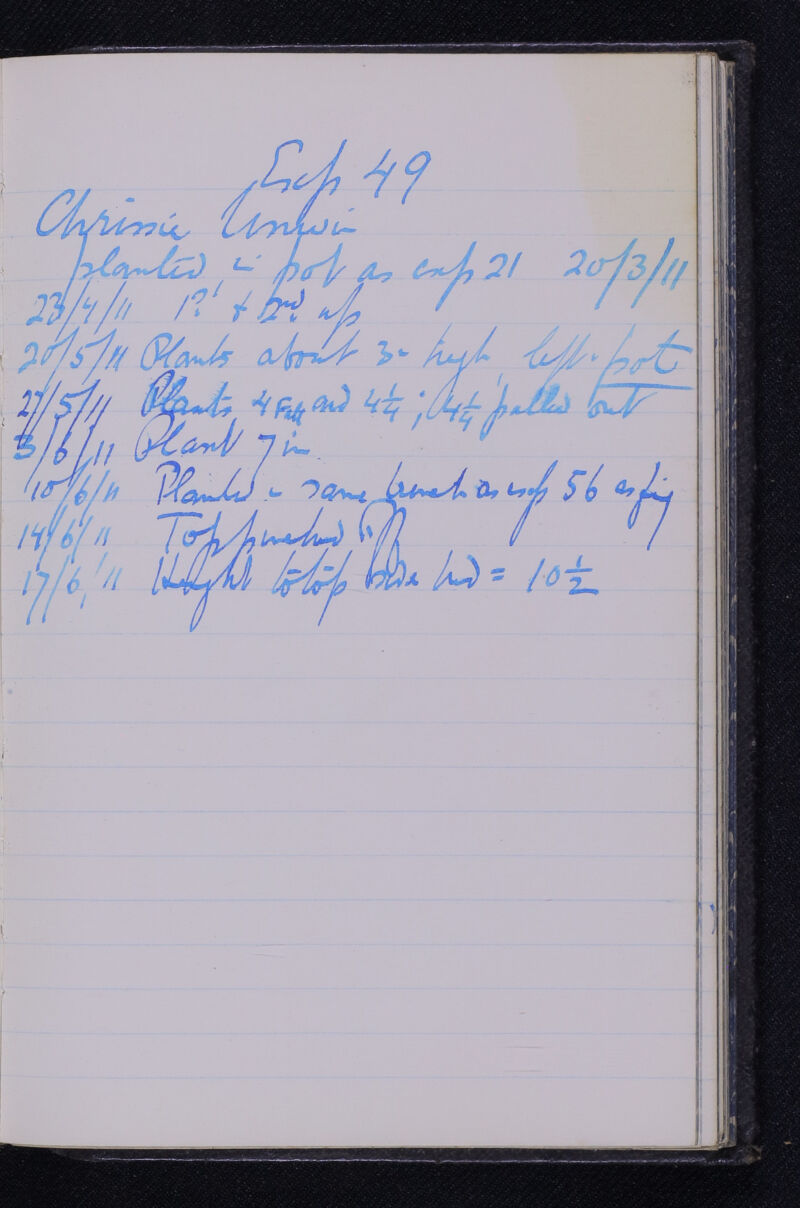 Exp 49
Chrissie Unwin
planted in pot as exp 21 20/3/11
23/4/11 1st & 2nd up
20/5/11 Plants about 3in high, left in pot
27/5/11 Plants 4 and 4¼; 4¼ pulled out
3/6/11 Plant 7 in
10/6/11 Planted in same trench as exp 56 as fig
14/6/11 Top pinched off
17/6/11 Height to top side bud = 10½